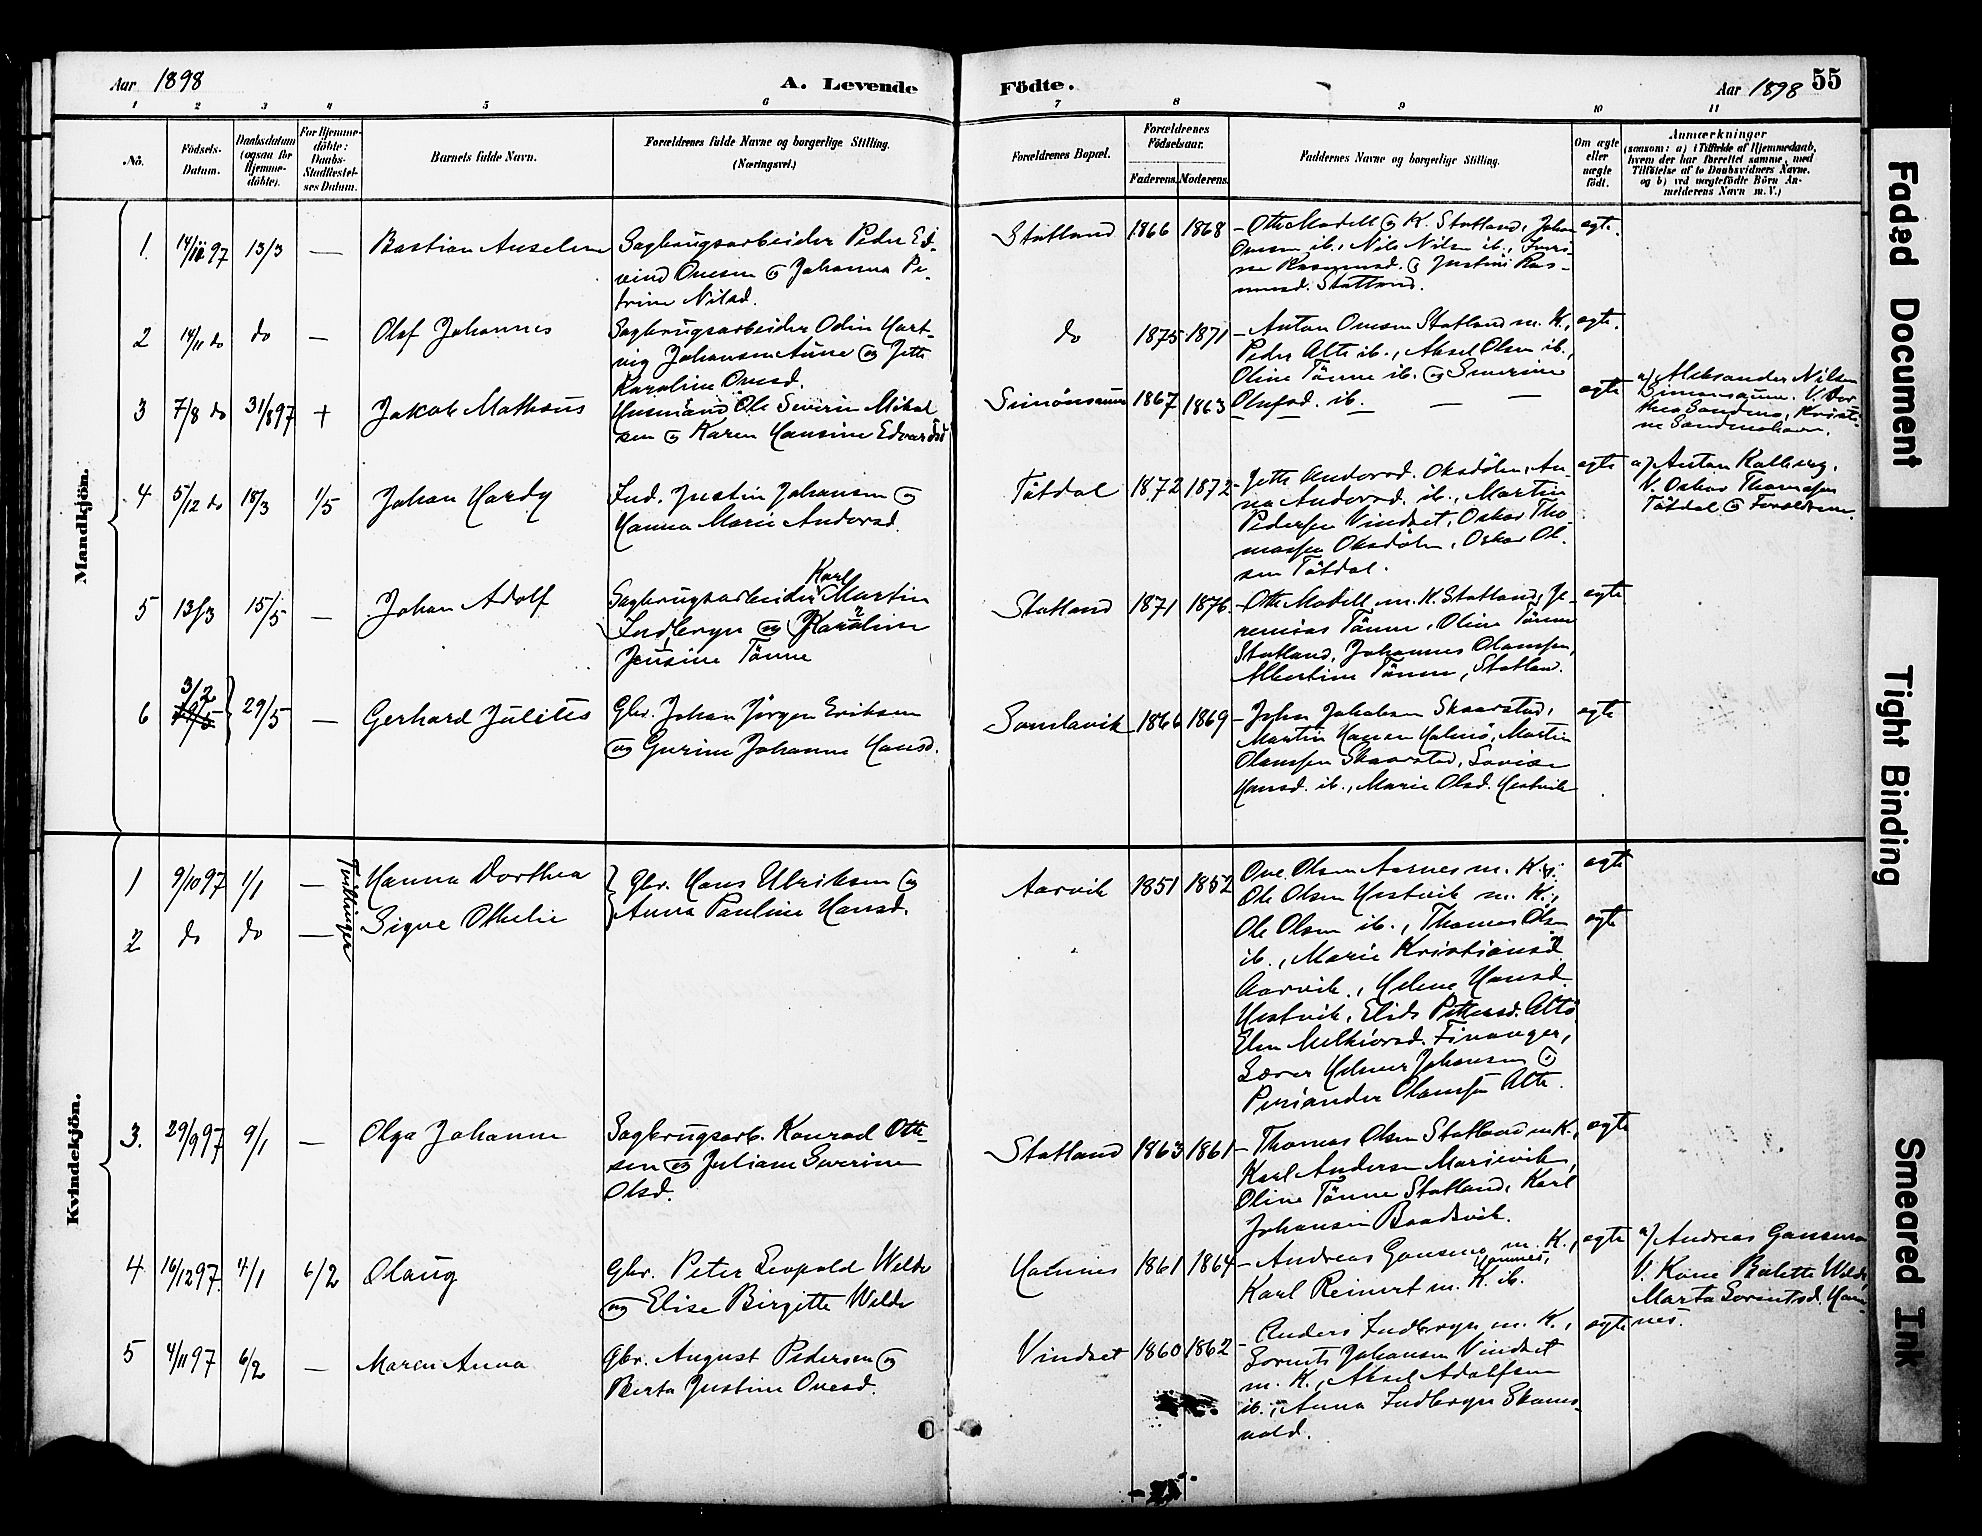 Aar 1898
A. Levende
Fødte.
Aar 1898 55
1 2 3 4 5 6 7 8 9 10 11
No.
Födsels-
Datum.
Daabsdatum
(ogsaa for
Hjemme-
döbte).
For Hjemme-
döbte:
Daabs-
Stadfæstel-
ses Datum.
Barnets fulde Navn.
Forældrenes fulde Navne og borgerlige Stilling.
(Næringsvei.)
Forældrenes Bopæl.
Forældrenes
Födselsaar.
Faderens.
Moderens.
Faddernes Navne og borgerlige Stilling.
Om ægte
eller
uægte
födt.
Anmærkninger
(saasom: a) i Tilfælde af Hjemmedaab,
hvem der har forrettet samme, med
Tilföielse af to Daabsvidners Navne,
og b) ved uægtefödte Börn An-
melderens Navn m. V.)
Mandkjön.
1 14/10 97 13/3 — Bastian Anselm
Sagbrugsarbeider Peder Ed-
vind Onesen og Johanna Pe-
trine Nilsd.
Statland 1866 1868
- Otto Modell og K. Statland, Johan
Onesen ib., Nils Nilsen ib.,
Rasmusd. og Justine Ras-
musd. Statland.
ægte.
2 14/11 do do — Olaf Johannes
Sagbrugsarbeider Odin Hart-
vig Johansen Aune og Jette
Karoline Onesd.
do 1875 1871
- Anton Onesen Statland m. K.,
Peder Alte ib., Aksel Olsen ib.,
Oline Tönne ib. og Severine
Olufsd. ib.
ægte.
3 7/8 do 31/8 97 + Jakob Matheus
Husmand Ole Severin Mikal-
sen og Karen Hansine Edvardsd
Simönsaune 1867 1863 — — — —
ægte
a/ Aleksander Nilsen
Simonsaune. V. Dor-
thea Sandmo, Kristi-
ne Sandmohavn.
4 5/12 do 18/3 1/5 Johan Hardy
Ind. Justin Johansen og
Hanna Marie Andorsd.
Tötdal 1872 1872
- Jette Andorsd. Oksdölen, An-
na Andorsd. ib., Martin
Pedersen Vindset, Oskar Tho-
massen Oksdölen, Oskar Ol-
sen Tötdal.
ægte
a/ Anton Kalberg.
V. Oskar Thomassen
Tötdal og Forældrene.
5 13/3 15/5 — Johan Adolf
Sagbrugsarbeider Karl Martin
Indbryn og Karoline
Jensine Tönne
Statland 1871 1876.
- Otto Modell m. K. Statland, Je-
remias Tönne, Oline Tönne
Statland, Johannes Olamsen,
Albertine Tönne, Statland.
ægte
6 3/2 29/5 — Gerhard Julius
Gbr. Johan Jörgen Eriksen
og Gurine Johanna Hansd.
Sandavik 1866 1869
- John Jakobsen Skaarstad,
Martin Hansen Holmö, Martin
Olamsen Skaarstad, Lovise
Hansd. ib., Marie Olsd. Hestvik
ægte
Kvindekjön.
1 9/10 97 1/1 — Tvillinger Hanna Dorthea
Gbr. Hans Ulriksen og
Anna Pauline Hansd.
Aarvik 1851 1852
Ove Olsen Aarnes m. K.,
Ole Olsen Hestvik m. K.,
ægte
2 do do — Signe Othelie
Ole Olsen ib., Thomas Olsen
ib., Marie Kristiansd.
Aarvik., Helene Hansd.
Hestvik, Elids Pettersd. Alte
Elen Melkiorsd. Finanger,
Sever Helmer Johansen og
Periander Olamsen Alte.
ægte
3. 29/9 97 9/1 — Olga Johanne
Sagbrugsarb. Konrad Ott-
sen og Juliane Severine
Olsd.
Statland 1863 1861
- Thomas Olsen Statland m K.,
Karl Andersen Marievik,
Oline Tönne Statland, Karl
Johansen Baadsvik.
ægte
4 16/12 97. 4/1 6/2 Olaug
Gbr. Peter Leopold Welde
og Elise Birgitte Welde
Hamnes 1861 1864
- Andreas Gansmo m. K., Hamnes,
Karl Reinert m. K. ib.
ægte
a/ Andreas Gansmo
V. Karie Bolette Welde,
Marta Sorentsd. Ham-
nes.
5 4/11 97 6/2 — Maren Anna
Gbr. August Pedersen og
Berta Justine Ovesd.
Vindset 1860 1862
- Anders Indbryn m. K.,
Sorents Johansen Vindset
m. K., Aksel Adolfsen
ib., Anna Indbryn Skams-
vold.
ægte
Faded Document
Tight Binding
Smeared Ink